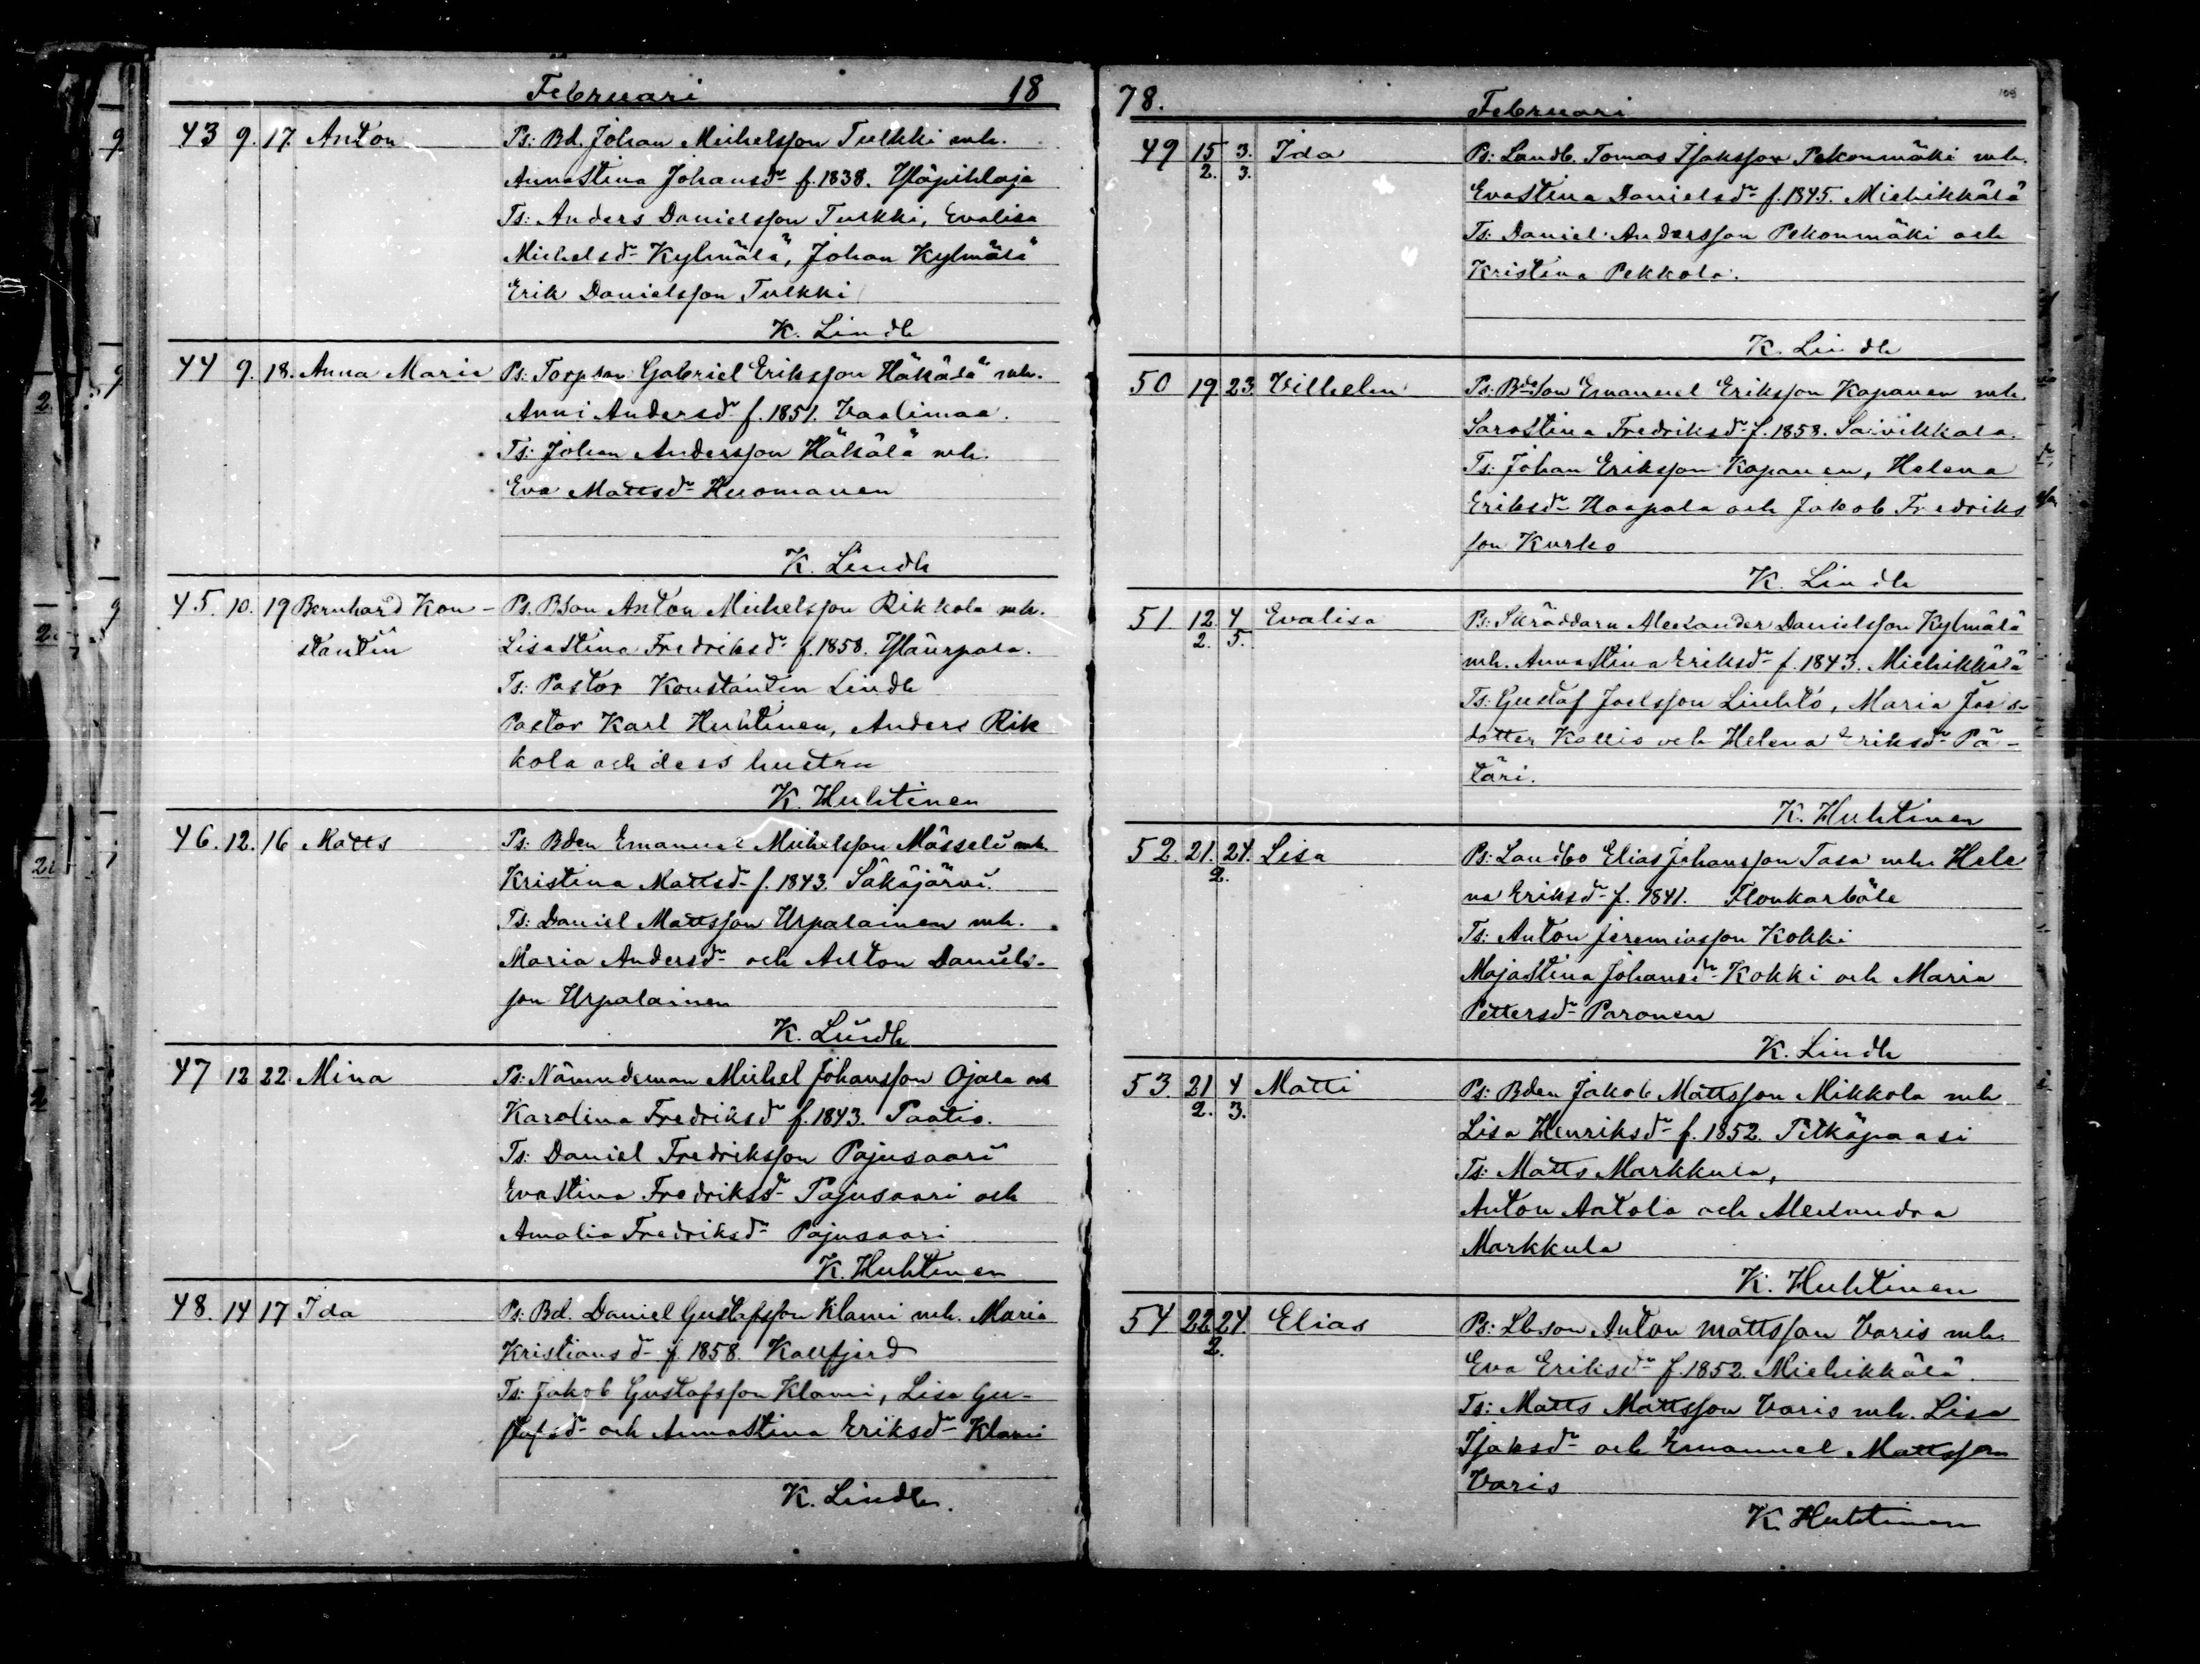 Februari 18
43 9. 17. Anton Ps: Bd. Johan Michelsson Tulkki mh.
Annastina Johansdr f. 1838. Yläpihlaja
Ts: Anders Danielsson Tulkki, Evalisa
Michelsdr Kylmälä, Johan Kylmälä
Erik Danielsson Tulkki
K. Lindh
44 9. 18. Anna Maria Ps: Torparn Gabriel Eriksson Häkälä mh.
Anni Andersdr f. 1851. Vaalimaa.
Ts: Johan Andersson Häkälä mh.
Eva Mattsdr Huomanen
K. Lindh
45. 10. 19 Bernhard Kon- Ps. Bson Anton Michelsson Rikkola mh.
stantin Lisastina Fredriksdr f. 1858. Yläurpala.
Ts: Pastor Konstantin Lindh
Pastor Karl Huhtinen, Anders Rik
kola och dess hustru
K. Huhtinen
46. 12. 16 Matts Ps: Bden Emanuel Michelsson Mässeli mh.
Kristina Mattsdr f. 1843. Säkäjärvi.
Ts: Daniel Mattsson Urpalainen mh.
Maria Andersdr och Anton Daniels-
son Urpalainen
K. Lindh
47 12 22. Mina Ps: Nämndeman Michel Johansson Ojala och
Karolina Fredriksd f. 1843. Paatio.
Ts: Daniel Fredriksson Pajusaari
Evastina Fredriksdr Pajusaari och
Amalia Fredriksdr Pajusaari
K. Huhtinen
48. 14 17 Ida Ps: Bd. Daniel Gustafsson Klami mh. Maria
Kristiansdr f. 1858. Kallfjerd
Ts: Jakob Gustafsson Klami, Lisa Gu-
stafsdr och Annastina Eriksdr Klami
K. Lindh.
78. Februari
49 15 3. Ida Ps: Landb. Tomas Isaksson Pekonmäki mh.
2. 3. Evastina Danielsdr f. 1845. Miehikkälä
Ts: Daniel Andersson Pekonmäki och
Kristina Pekkola.
K. Lindh
50 19. 23. Vilhelm Ps: Bdeson Emanuel Eriksson Kapanen mh.
Sarastina Fredriksdr f. 1858. Saivikkala.
Ts: Johan Eriksson Kapanen, Helena
Eriksdr Haapala och Jakob Fredriks
son Kurko
K. Lindh
51 12. 4 Evalisa Ps: Skräddarn Alexander Danielsson Kylmälä
2. 5. mh. Annastina Eriksdr f. 1843. Miehikkälä
Ts: Gustaf Joelsson Liukto, Maria Joels-
dotter Kallio och Helena Eriksdr Pä-
täri.
K. Huhtinen
52. 21. 24. Lisa Ps: Landbo Elias Johansson Tasa mh. Hele
2. na Eriksdr f. 1841. Flonkarböle
Ts: Anton Jeremiasson Kokki
Majastina Johansdr Kokki och Maria
Pettersdr Paronen
K. Lindh
53. 21 4 Matti Ps: Bden Jakob Mattsson Mikkola mh
2. 3. Lisa Henriksdr f. 1852. Pitkäpaasi
Ts: Matts Markkula,
Anton Aatola och Alexandra
Markkula
K. Huhtinen
54 22 24. Elias Ps: Lbson Anton Mattsson Varis mh.
2. Eva Eriksdr f. 1852. Miehikkälä.
Ts: Matts Mattsson Varis mh. Lisa
Isaksdr och Emanuel Mattsson
Varis
K. Huhtinen